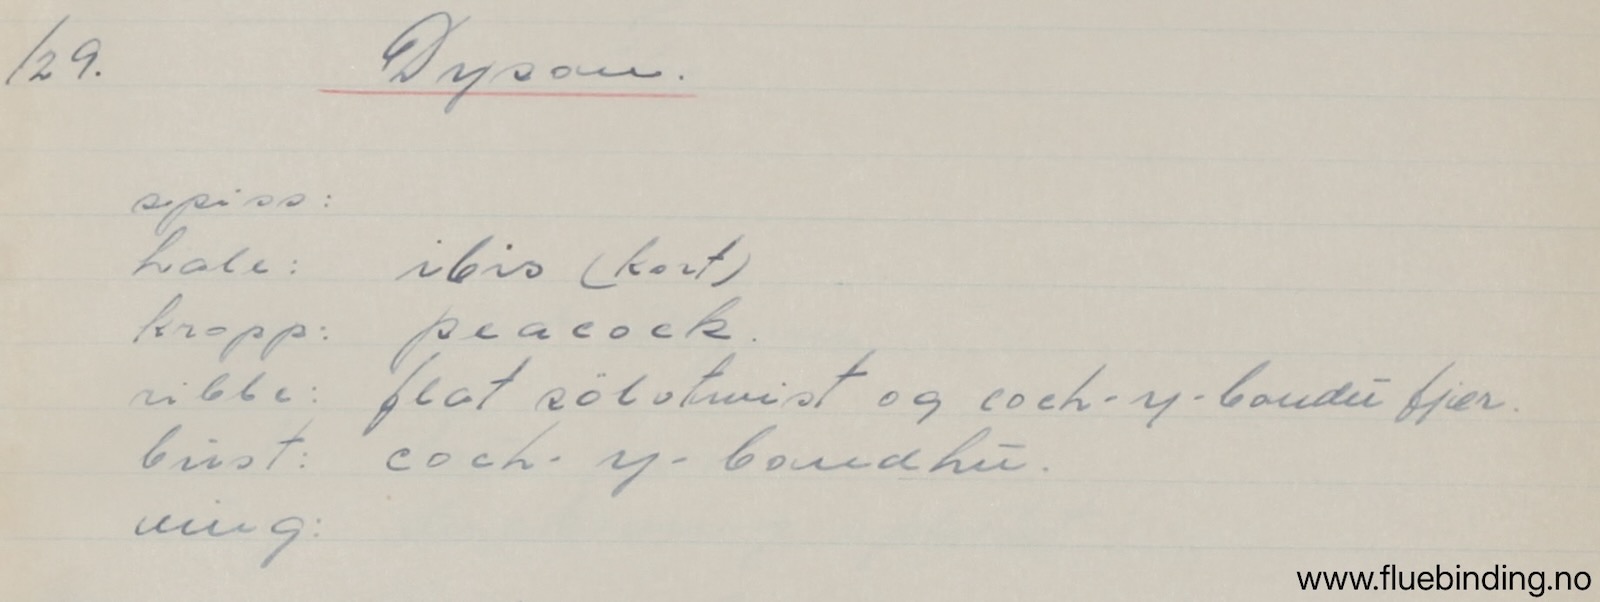 /29. Dyson.
spiss:
hale: ibis (kort)
kropp: peacock.
ribbe: flat sölvtwist og coch-y-boudū fjer.
büst: coch-y-boudhū.
ving:
www.fluebinding.no